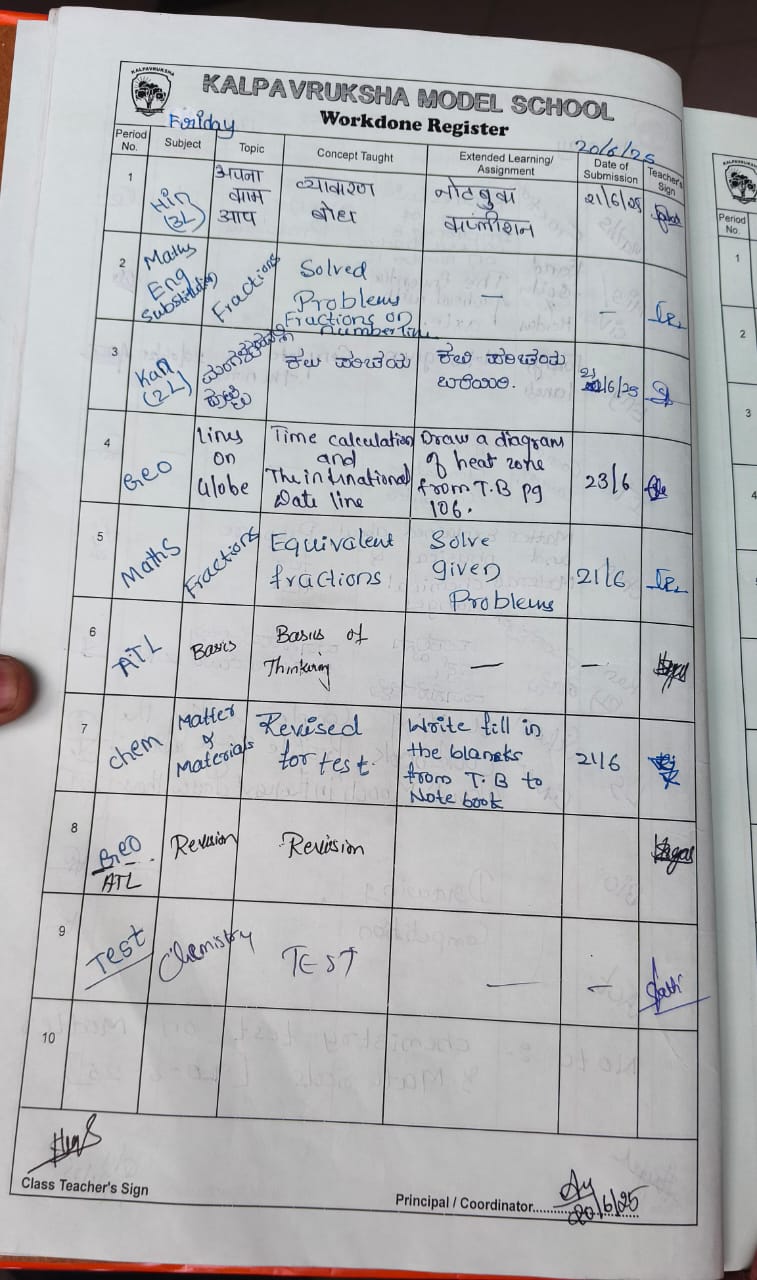 KALPAVRUKSHA
KALPAVRUKSHA MODEL SCHOOL
Workdone Register
Friday
20/6/25
Period No. Subject Topic Concept Taught Extended Learning/ Assignment Date of Submission Teacher's Sign
1 Hin (3L) अपना काम आप व्याकरण बोध नोटबुक कंप्लीशन 21/6/25
2 Maths Eng Substitution Fractions Solved Problems Fractions on number line — –
3 Kan (2L) ಕಲಿ ಪರಿಚಯ ಕಲಿ ಪರಿಚಯ ಬರೆಯಿರಿ. 21/6/25
4 Geo Lines on Globe Time calculation and The intrnational Date line Draw a diagram of heat zone from T.B pg 106. 23/6
5 Maths Fractions Equivalent fractions Solve given Problems 21/6
6 ATL Basics Basics of Thinking — –
7 chem Matter & Materials Revised for test. Write fill in the blanks from T.B to Note book 21/6
8 Geo ATL Revision Revision
9 Test Chemistry TEST — –
10
Class Teacher's Sign
Principal / Coordinator............ 20/6/25
Period No.
1
2
3
4